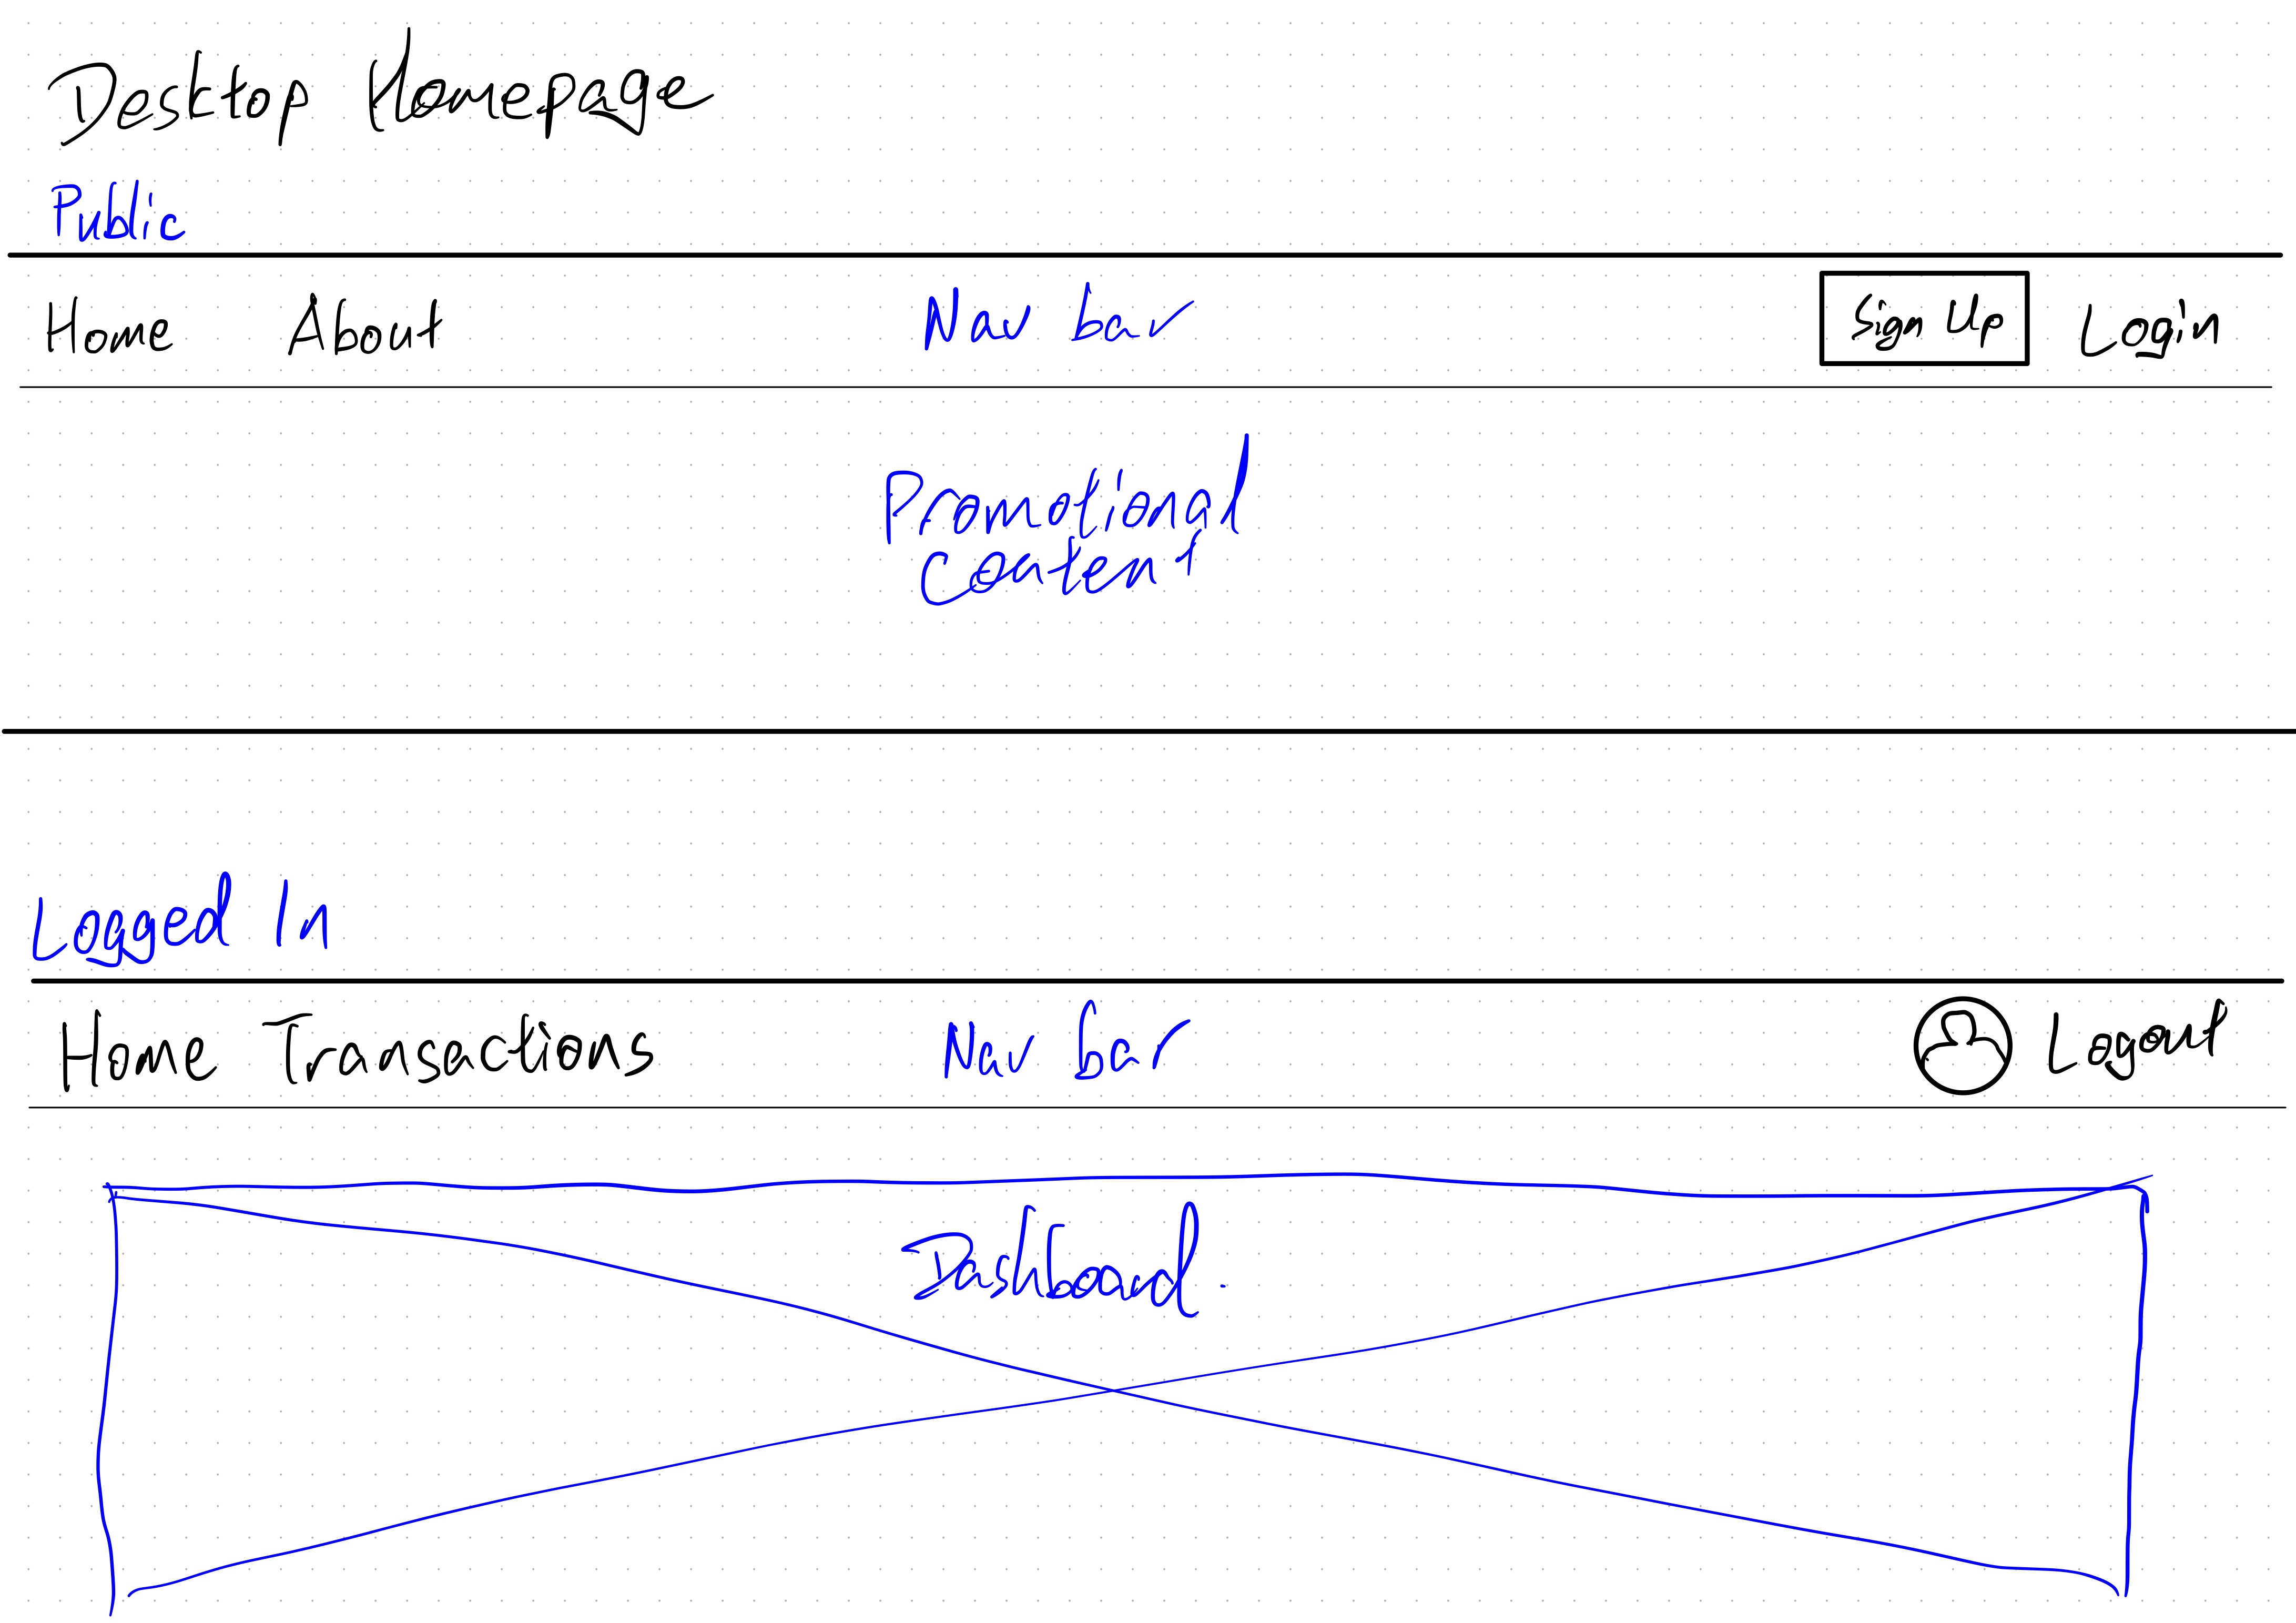 Desktop Homepage
Public
Home About Nav bar Sign Up Login
Promotional
Content
Logged In
Home Transactions Nav bar Logout
Dashboard.